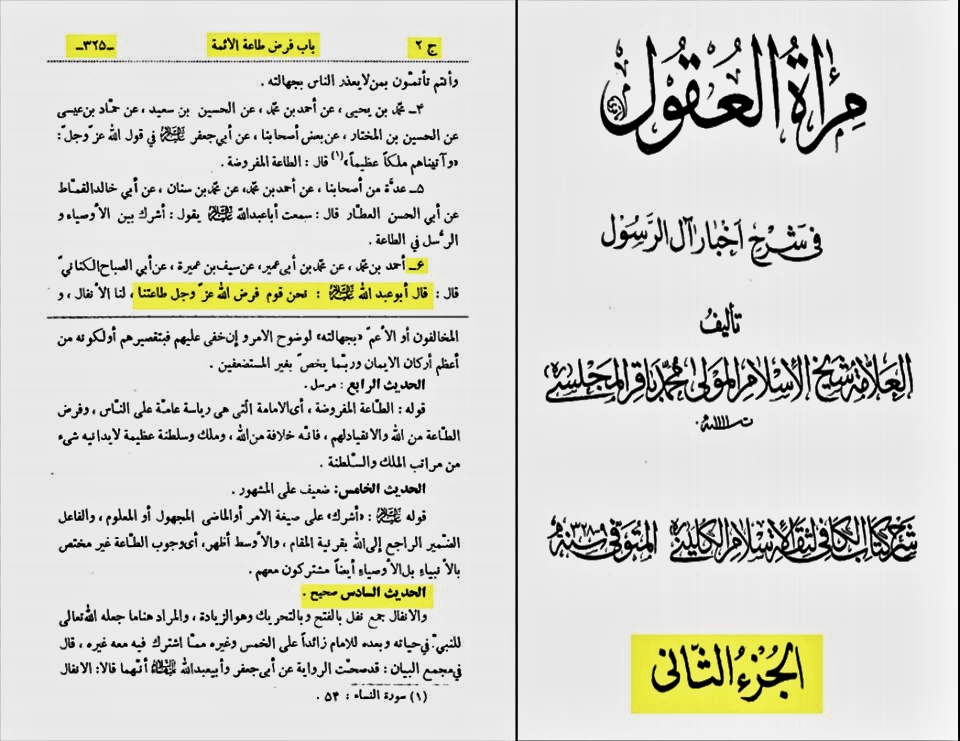 ج ٢ باب فرض طاعة الأئمة ـ٣٢٥ـ
وأنتم تأتمّون بمن لا يعذر الناس بجهالته .
٤ـ محمّد بن يحيى ، عن أحمد بن محمّد ، عن الحسين بن سعيد ، عن حمّاد بن عيسى
عن الحسين بن المختار ، عن بعض أصحابنا ، عن أبي جعفر عليه السلام في قول الله عزّ وجلّ :
«وآتيناهم ملكاً عظيماً» (١) قال : الطاعة المفروضة .
٥ـ عدّة من أصحابنا ، عن أحمد بن محمّد ، عن محمّد بن سنان ، عن أبي خالد القمّاط
عن أبي الحسن العطّار قال : سمعت أبا عبدالله عليه السلام يقول : أشرك بين الأوصياء و
الرّسل في الطاعة .
٦ـ أحمد بن محمّد ، عن محمّد بن أبي عمير ، عن سيف بن عميرة ، عن أبي الصباح الكناني
قال : قال أبو عبد الله عليه السلام : نحن قوم فرض الله عزّ وجل طاعتنا ، لنا الأنفال ، و
المخالفون أو الأعمّ «بجهالته» لوضوح الامر وإن خفى عليهم فبتقصيرهم أولكونه من
أعظم أركان الايمان وربّما يخصّ بغير المستضعفين .
الحديث الرابع : مرسل .
قوله : الطّاعة المفروضة ، أى الامامة الّتى هى رياسة عامّة على النّاس ، وفرض
الطّاعة من الله والانقياد لهم ، فانّه خلافة من الله ، وملك وسلطنة عظيمة لايدانيه شىء
من مراتب الملك والسّلطنة .
الحديث الخامس: ضعيف على المشهور .
قوله عليه السلام : «أشرك» على صيغة الامر أو الماضى المجهول أو المعلوم ، والفاعل
الضمير الراجع إلى الله بقرينة المقام ، والأوسط أظهر ، أى وجوب الطّاعة غير مختص
بالأنبياء بل الأوصياء أيضاً مشتركون معهم .
الحديث السادس صحيح .
والانفال جمع نفل بالفتح وبالتحريك وهو الزيادة ، والمراد هنا ما جعله الله تعالى
للنبيّ في حياته وبعده للامام زائداً على الخمس وغيره ممّا اشترك فيه معه غيره ، قال
في مجمع البيان : قد صحّت الرواية عن أبي جعفر وأبي عبدالله عليهما السلام أنّهما قالا : الانفال
(١) سورة النساء : ٥٤ .
مرآة العقول
في شرح أخبار آل الرسول
تأليف
العلامة شيخ الإسلام المولى محمد باقر المجلسي
ت ١١١١ه
شرح كتاب الكافي لثقة الإسلام الكليني المتوفى سنة ٣٢٨-٩
الجزء الثاني